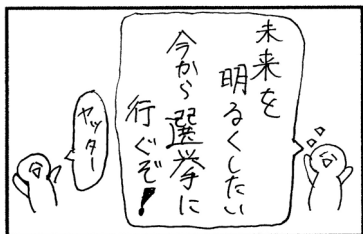 未来を
明るくしたい
今から選挙に
行ぐぞ!
ヤッター